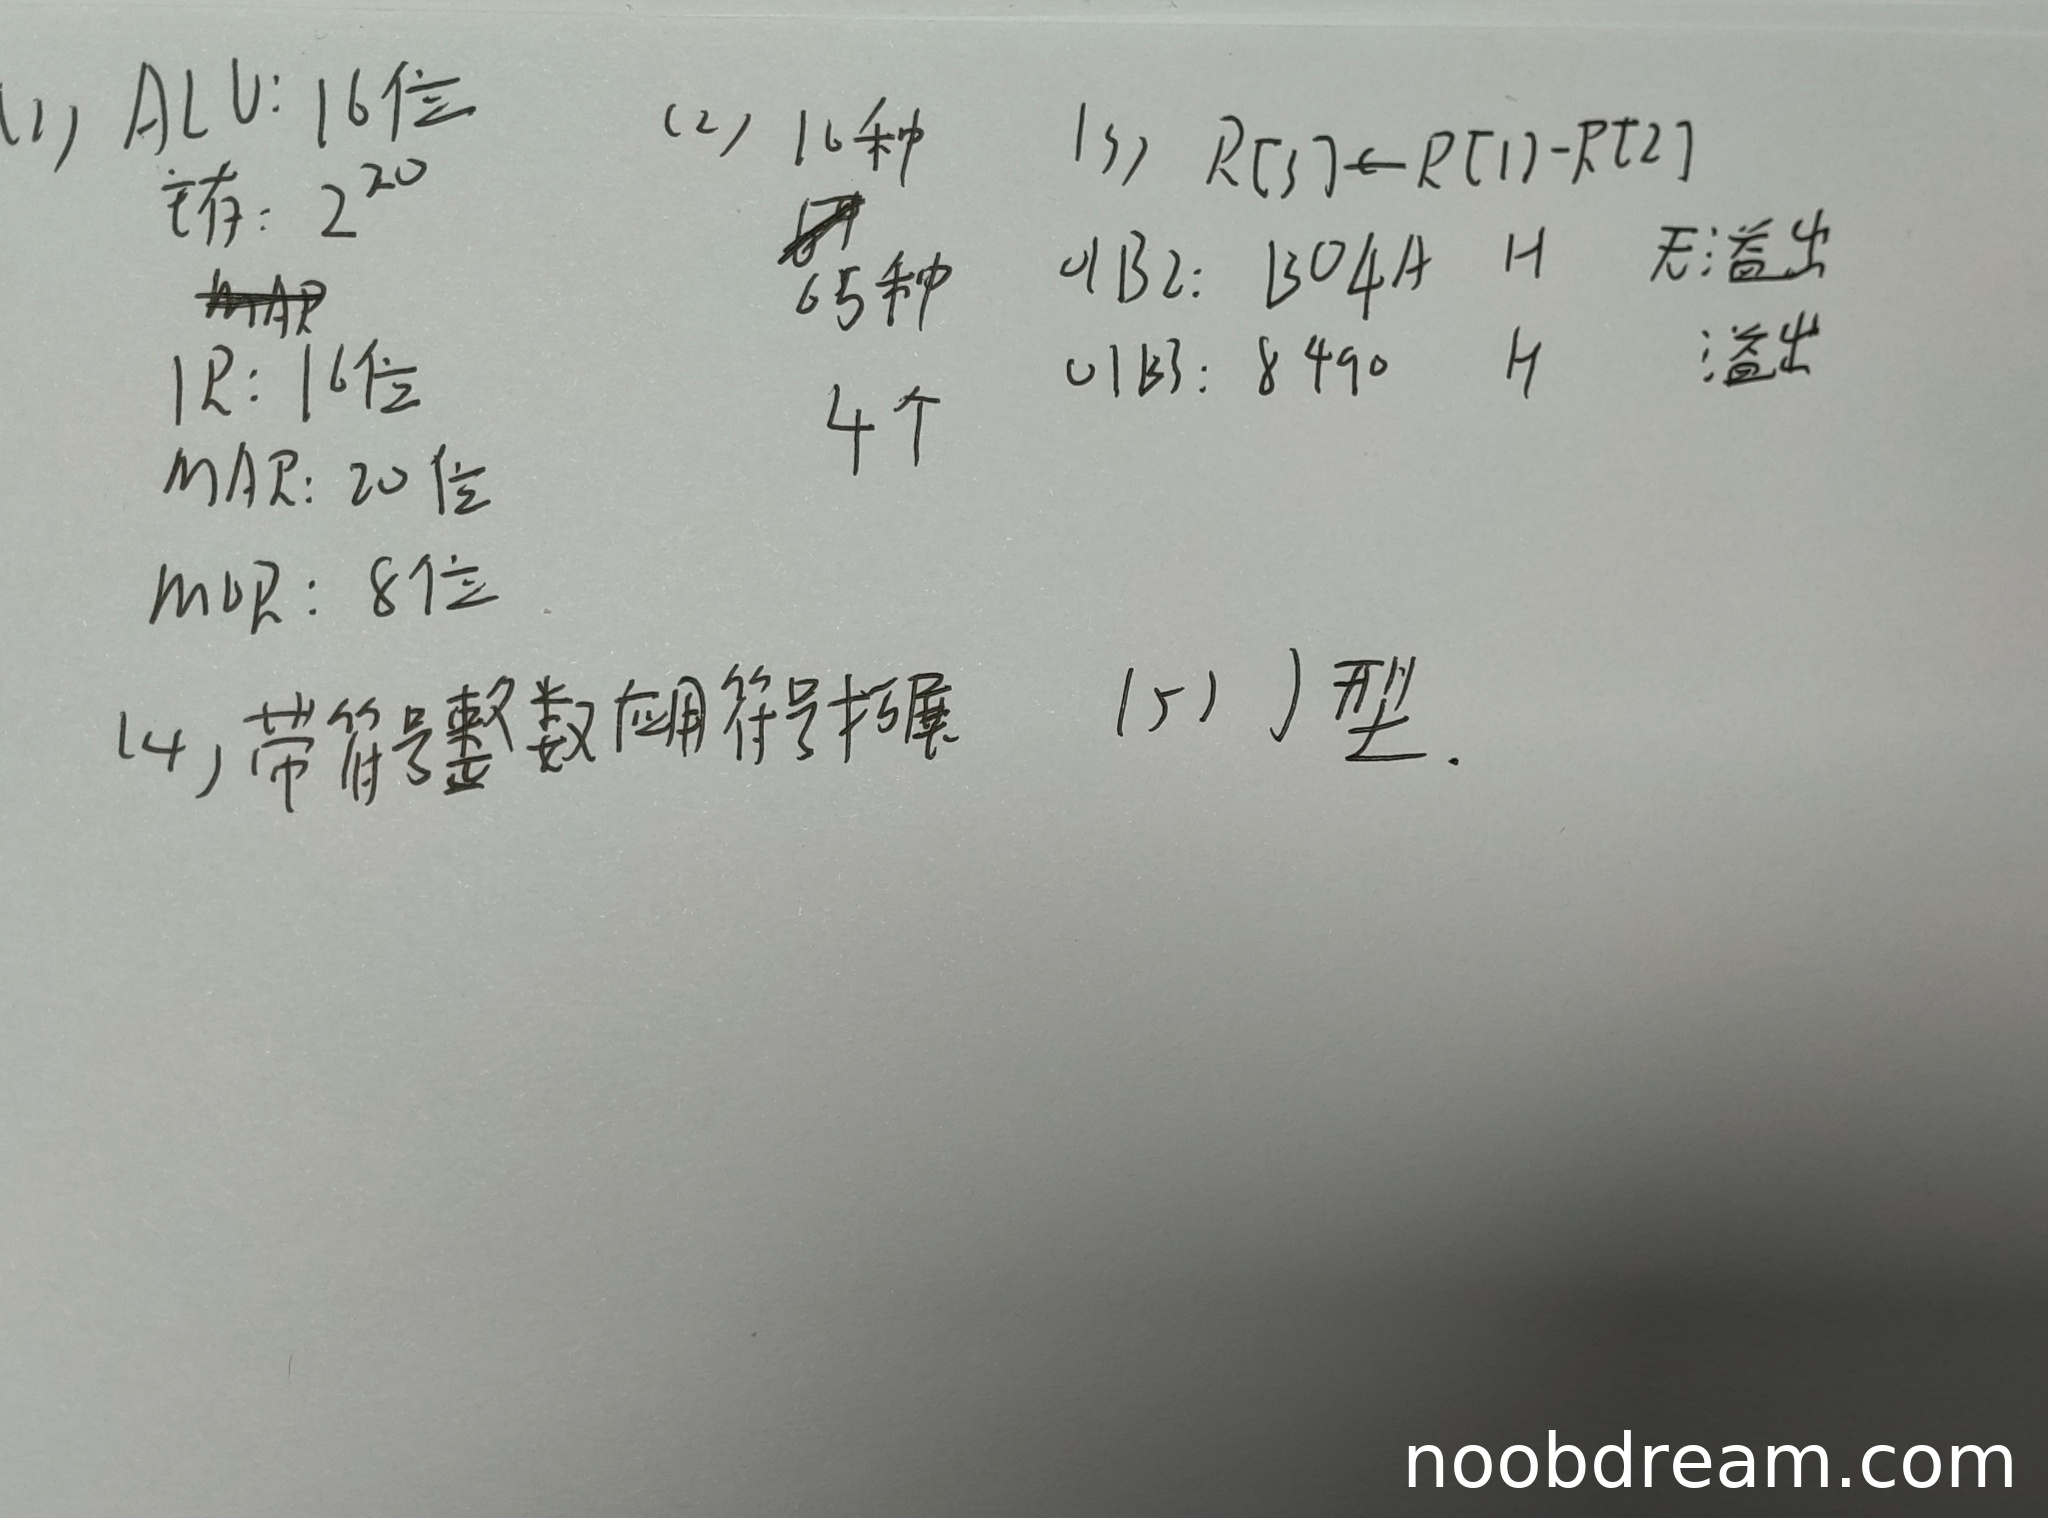 (1) ALU: 16位
主存: 2^20
IR: 16位
MAR: 20位
MDR: 8位
(2) 16种
65种
4个
(3) R[3]←R[1]-R[2]
01B2: B04A H 无溢出
01B3: 8490 H 溢出
(4) 带符号整数应用符号拓展
(5) J型.
noobdream.com